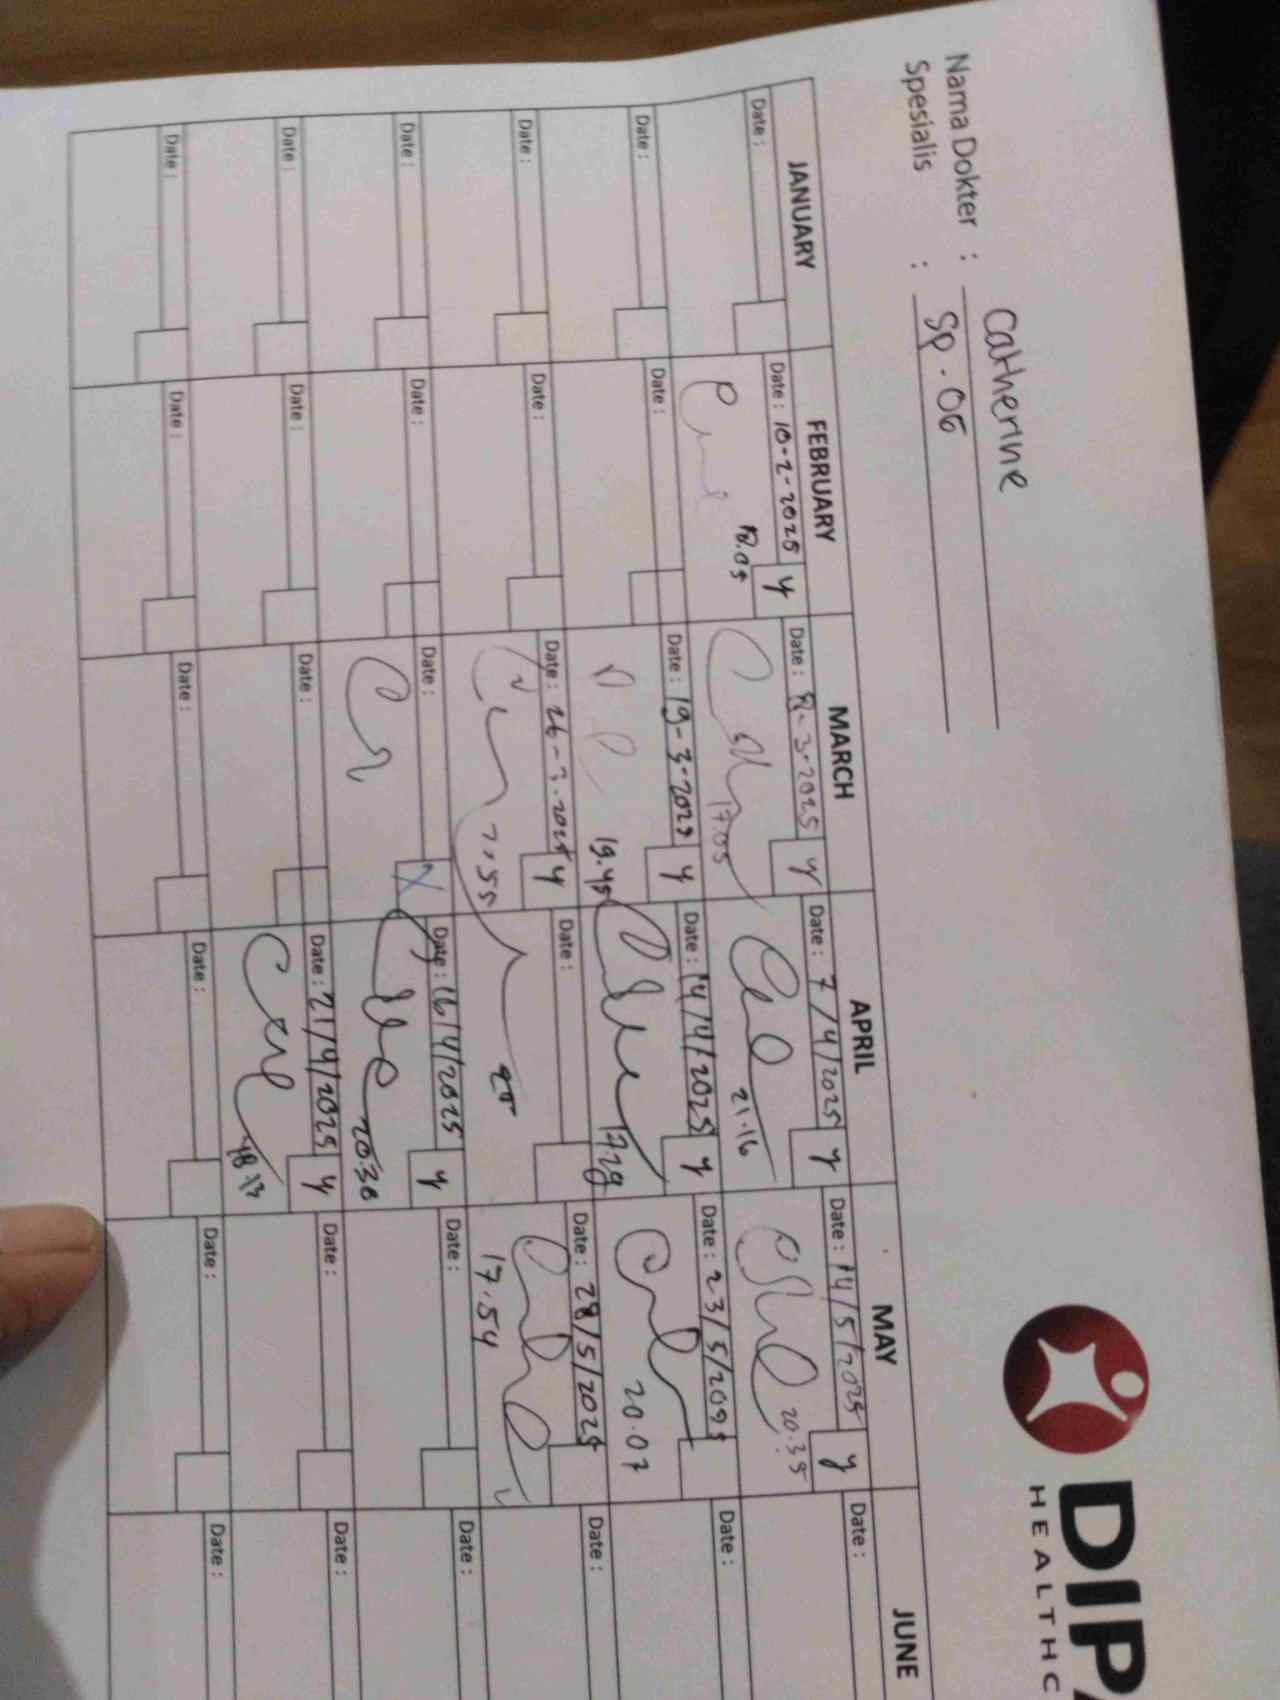 DIPA
HEALTHC
Nama Dokter : Catherine
Spesialis : Sp. OG
JANUARY FEBRUARY MARCH APRIL MAY JUNE
Date : Date : 10-2-2025 y Date : 12-3-2025 y Date : 7/4/2025 y Date : 14/5/2025 y Date :
17.05 21.16 20.35
Date : Date : Date : 19-3-2025 y Date : 14/4/2025 y Date : 23/5/2095 Date :
19.45 17.29 20.07
Date : Date : Date : 26-3-2025 y Date : Date : 28/5/2025 Date :
17.54
Date : Date : Date : X Date : 16/4/2025 y Date : Date :
20.30
Date : Date : Date : Date : 21/4/2025 y Date : Date :
Date : Date : Date : Date : Date : Date :